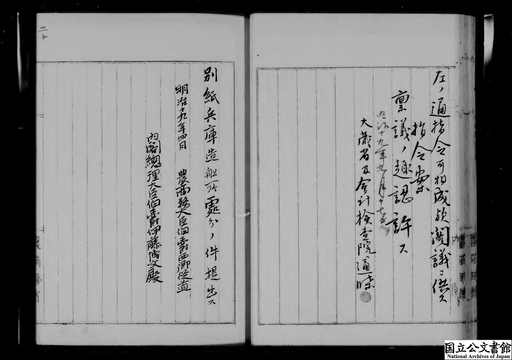 左ノ通指令可相成哉閣議ニ供ス
指令案
稟議ノ趣認許ス
明治十九年九月十七日
大蔵省及会計検査院通牒
別紙兵庫造船所處分ノ件提出ス
明治十九年四月
農商務大臣伯爵西郷従道
内閣總理大臣伯爵伊藤博文殿
二十
国立公文書館
National Archives of Japan